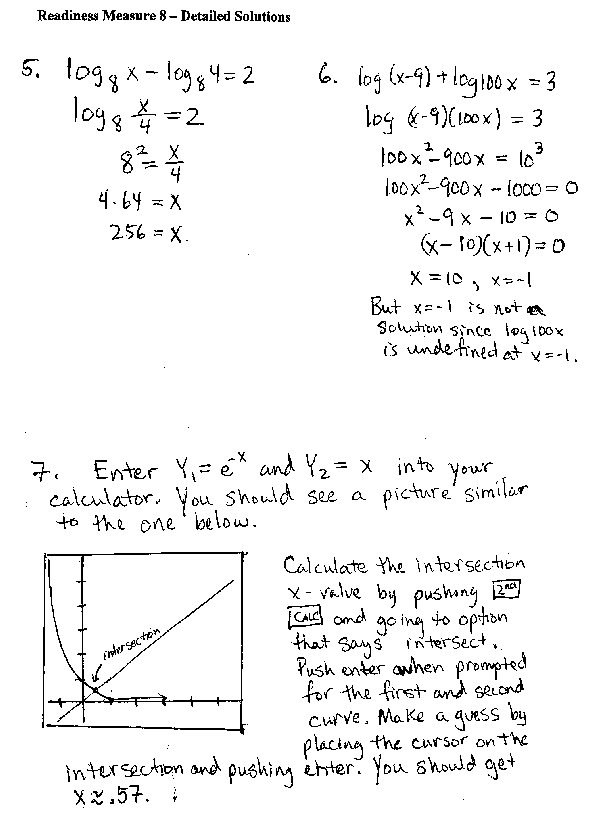 Readiness Measure 8 – Detailed Solutions
5. log₈ x − log₈ 4 = 2
log₈ x/4 = 2
8² = x/4
4·64 = x
256 = x.
6. log (x-9) + log 100x = 3
log (x-9)(100x) = 3
100x² - 900x = 10³
100x² - 900x - 1000 = 0
x² - 9x - 10 = 0
(x - 10)(x + 1) = 0
x = 10, x = -1
But x = -1 is not a
solution since log 100x
is undefined at x = -1.
7. Enter Y₁ = e⁻ˣ and Y₂ = x into your
calculator. You should see a picture similar
to the one below.
intersection
Calculate the intersection
x-value by pushing 2nd
CALC and going to option
that says intersect.
Push enter when prompted
for the first and second
curve. Make a guess by
placing the cursor on the
intersection and pushing enter. You should get
x ≈ .57.